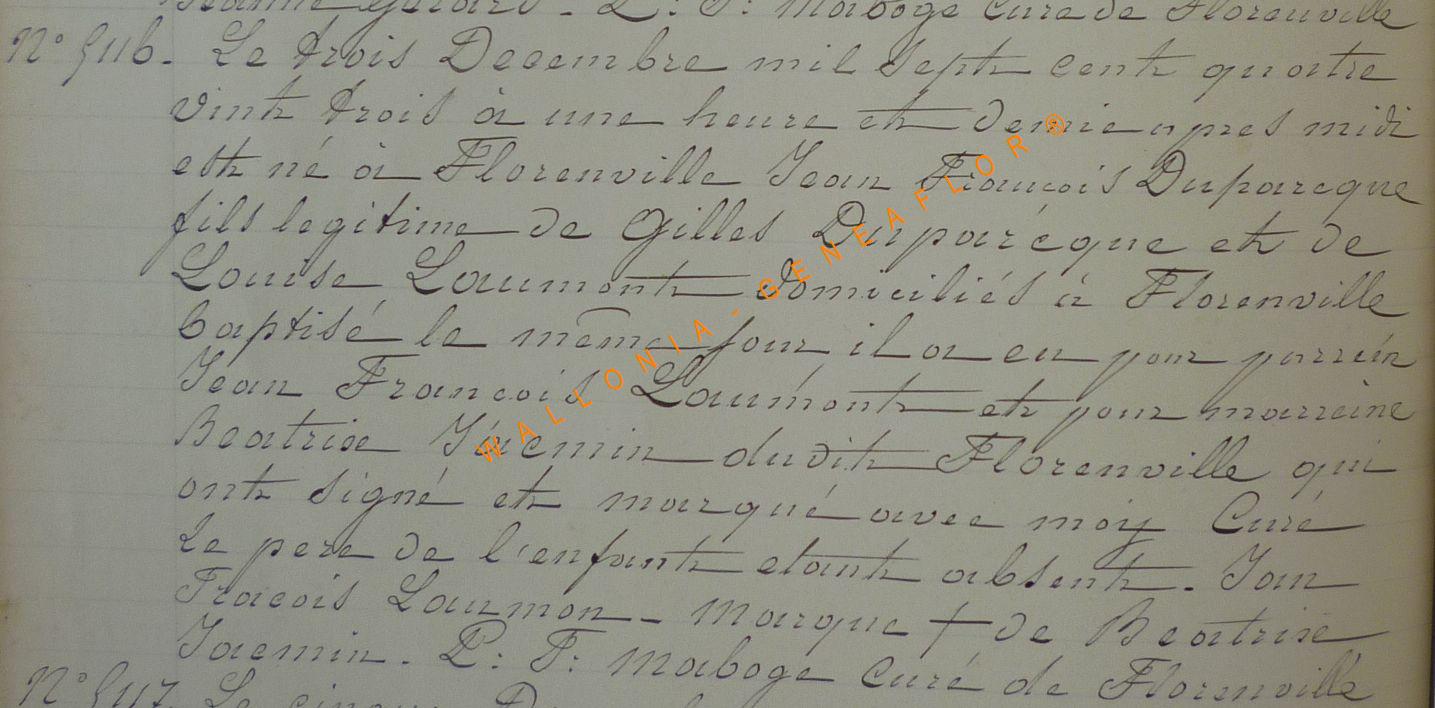 Jeanne Gerard - P: F: Maboge Curé de Florenville
N° 5116. Le trois Decembre mil Sept cent quatre
vint trois à une heure et demie apres midi
est né à Florenville Jean François Duparcque
fils legitime de Gilles Duparcque et de
Louise Laumont domiciliés à Florenville
baptisé le même jour il a eu pour parrein
Jean François Laumont et pour marreine
Beatrise Jacmin dudit Florenville qui
ont signé et marqué avec moy Curé
Le pere de l'enfant etant absent. Jan
Fracois Laumon - Marque + de Beatrise
Jacmin. P: F: Maboge Curé de Florenville
N° 5117. Le cinque
WALLONIA - GENEAFLOR ®